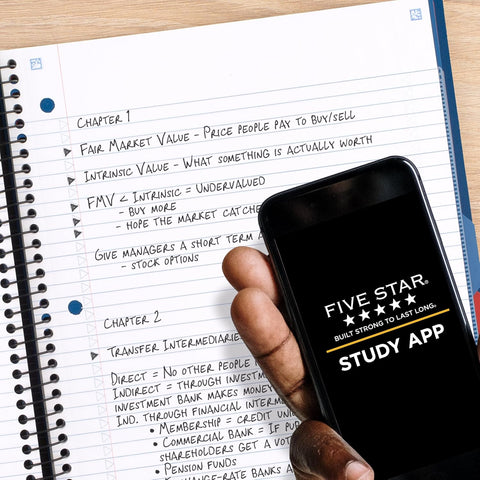 CHAPTER 1
FAIR MARKET VALUE - PRICE PEOPLE PAY TO BUY/SELL
INTRINSIC VALUE - WHAT SOMETHING IS ACTUALLY WORTH
FMV < INTRINSIC = UNDERVALUED
- BUY MORE
- HOPE THE MARKET CATCHE
GIVE MANAGERS A SHORT TERM
- STOCK OPTIONS
CHAPTER 2
TRANSFER INTERMEDIARIE
DIRECT = NO OTHER PEOPLE
INDIRECT = THROUGH INVESTM
INVESTMENT BANK MAKES MONEY
IND. THROUGH FINANCIAL INTERM
• MEMBERSHIP = CREDIT UNI
• COMMERCIAL BANK = IF PU
SHAREHOLDERS GET A VOT
• PENSION FUNDS
EXCHANGE-RATE BANKS A
FIVE STAR®
★★★★★
BUILT STRONG TO LAST LONG.
STUDY APP